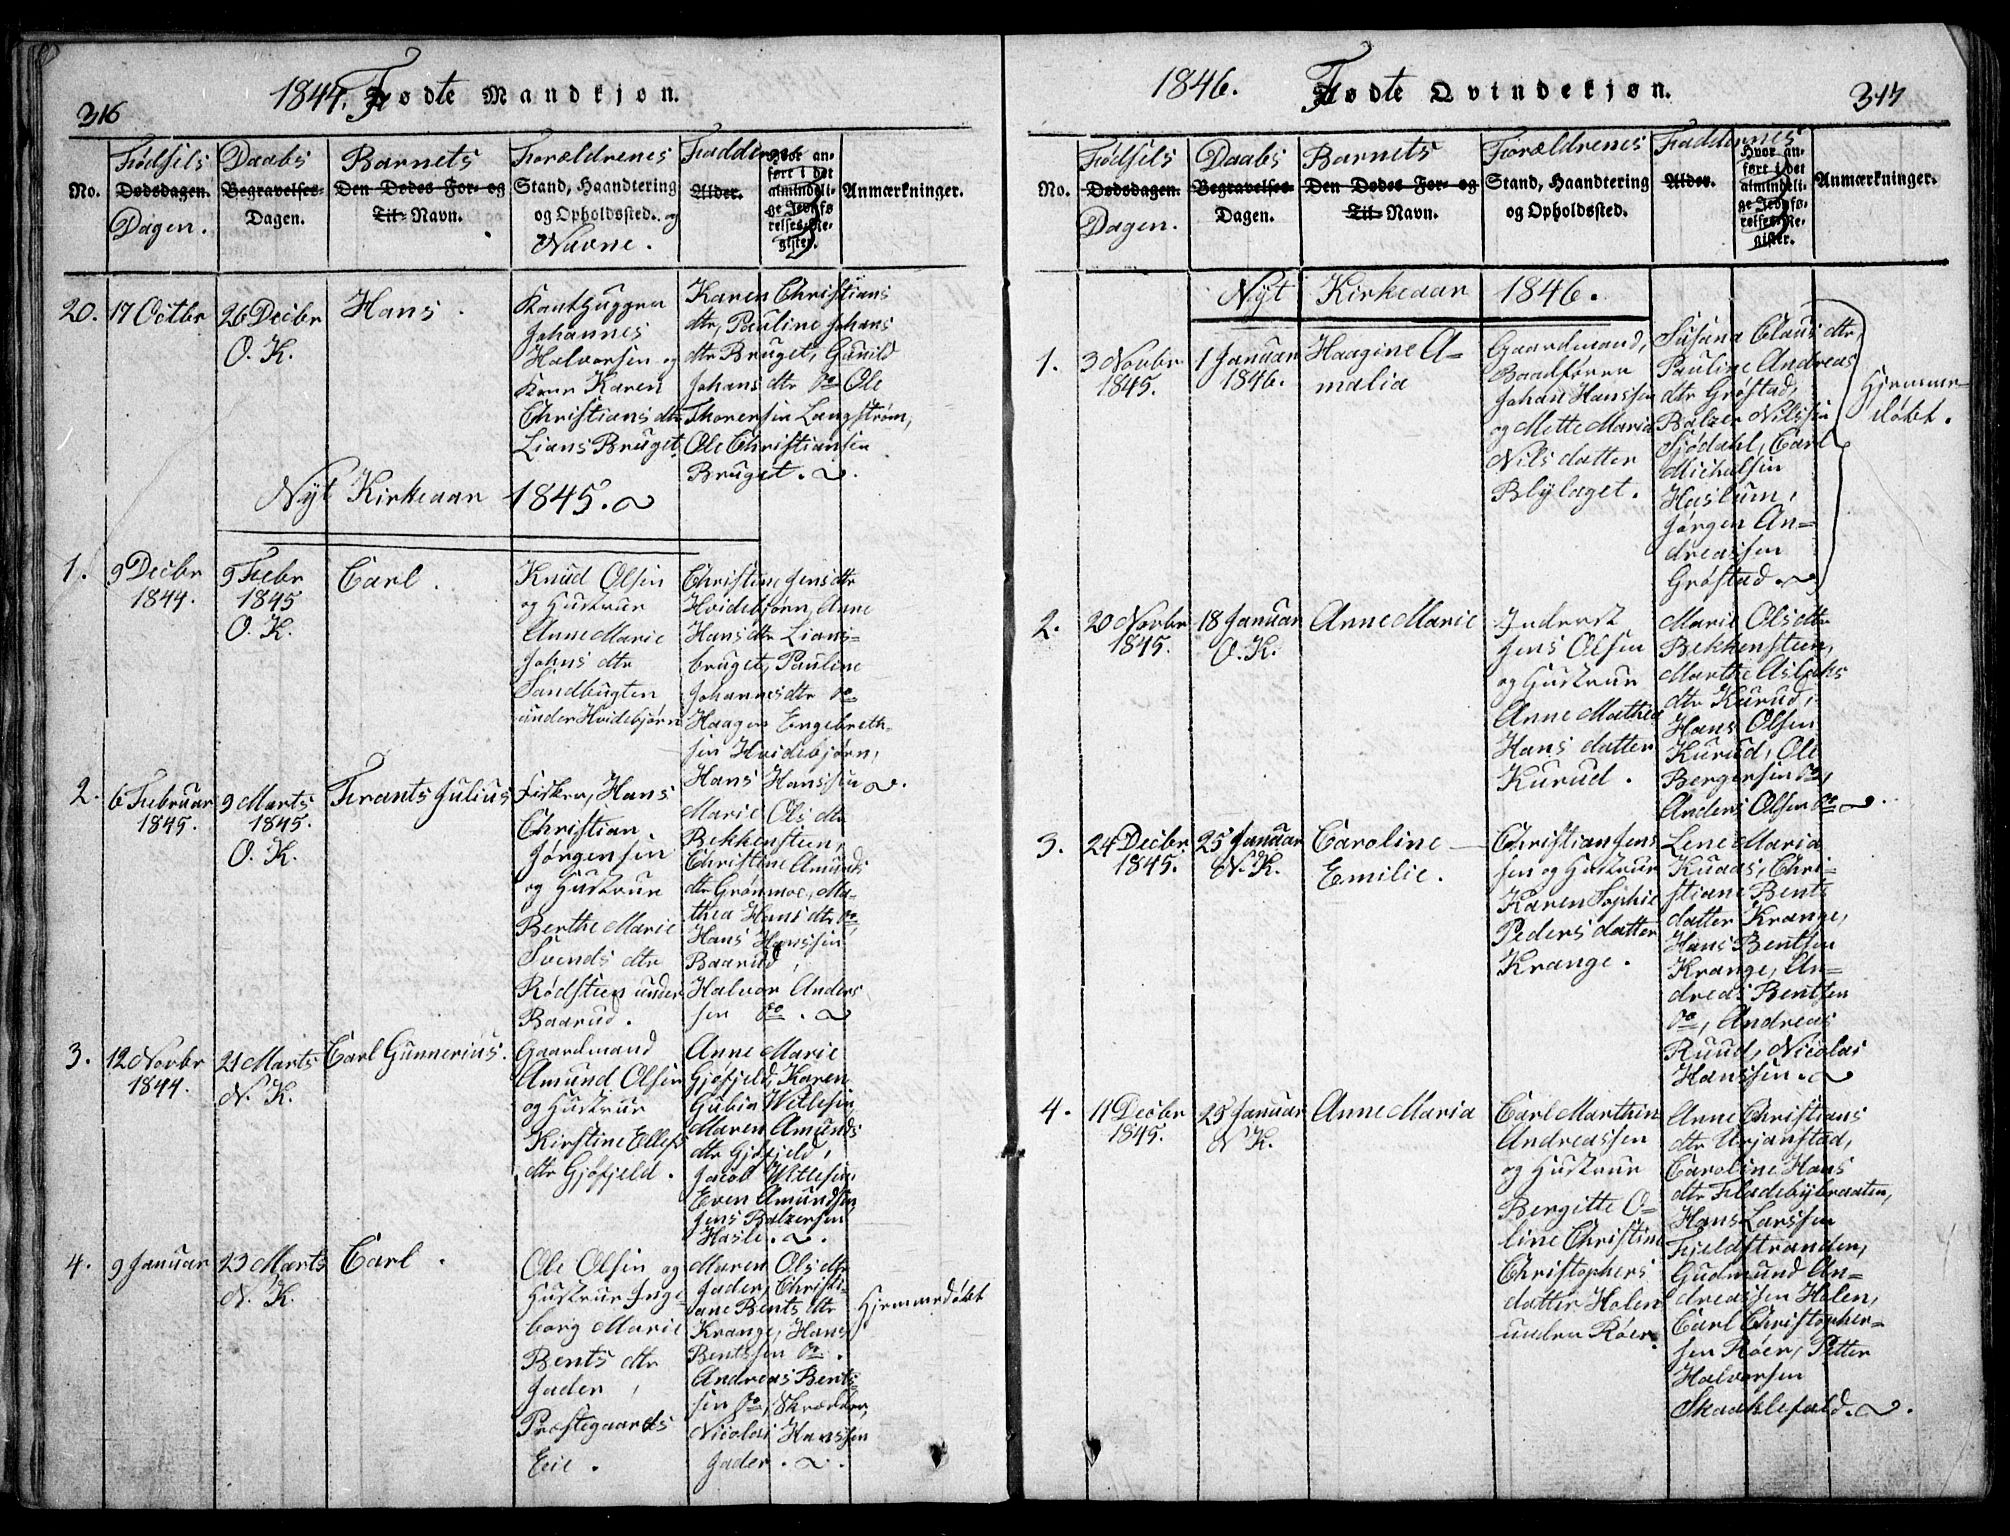 316
1844. Fødte Mandkjøn.
No.
Fødsels
Dødsdagen.
Dagen.
Daabs
Begravelses-
Dagen.
Barnets
Den Dødes For- og
Til- Navn.
Forældrenes
Stand, Haandtering
og Opholdssted. og
Navne.
Faddernes
Alder.
Hvor an-
ført i det
almindeli-
ge Jevnfø-
relses-Re-
gister.
Anmærkninger.
20.
17 Octbr
26 Decbr
O. K.
Hans.
Kanthugger
Johannes
Halvorsen og
Kone Karen
Christians dtr
Lians Bruget.
Karen Christians
dtr, Pauline Johans
dtr Bruget, Gunild
Johans dtr do Ole
Thoresen Langstrøm,
Ole Christiansen
Bruget.
Nyt Kirkeaar 1845.
1.
9 Decbr
1844.
9 Febr
1845
O. K.
Carl.
Knud Olsen
og Hustrue
Anne Marie
Johns dtr
Sandbugten
under Hvidebjørn
Christine Jens dtr
Hvidebjørn, Anne
Hans dtr Lians-
bruget, Pauline
Johannes dtr do
Haagen Engebreth-
sen Hvidebjørn,
Hans Hanssen
2.
6 Februar
1845.
9 Marts
1845.
O. K.
Frants Julius
Fisker, Hans
Christian
Jørgensen
og Hustrue
Berthe Marie
Svends dtr
Rødsteen under
Baarud.
Marie Ols dtr
Bekkensteen,
Christine Amunds
dtr Grønmoe, Ma-
thea Hans dtr do,
Hans Hanssen
Baarud,
Halvor Anders
sen do.
3.
12 Novbr
1844.
21 Marts
N. K.
Carl Gunnerius.
Gaardmand
Amund Olsen
og Hustrue
Kirstine Ellefs
dtr Gjøfjeld.
Anne Marie
Gjøfjeld, Karen
Gubia Wetlesen,
Maren Amunds
dtr Gjøfjeld,
Jacob Wetlesen,
Even Amundsen
Jens Balzersen
Hasle.
4.
9 Januar
23 Marts
N. K.
Carl.
Ole Olsen og
Hustrue Inge
borg Marie
Bents dtr
Jader,
Præstegaards
Eie.
Maren Ols dtr
Jader, Christi-
ane Bents dtr
Krange, Hans
Bentssen do.
Andreas Bents
sen do, Skrædder,
Nicolai Hanssen
Jader.
Hjemmedøbt
1846. Fødte Qvindekjøn.
317
No.
Fødsels
Dødsdagen.
Dagen.
Daabs
Begravelses-
Dagen.
Barnets
Den Dødes For- og
Til- Navn.
Forældrenes
Stand, Haandtering
og Opholdssted.
Faddernes
Alder.
Hvor an-
ført i det
almindeli-
ge Jevnfø-
relses-Re-
gister.
Anmærkninger.
Nyt Kirkeaar 1846.
1.
3 Novbr
1845.
1 Januar
1846.
Haagine A-
malia
Gaardmand,
Baadfører
Johan Hanssen
og Mette Maria
Nils datter
Blylaget.
Susana Claus dtr,
Pauline Andreas
dtr Grøstad,
Balzer Nilssen
Sjødahl, Carl
Michelsen
Haslum,
Jørgen An-
dreassen
Grøstad.
Hjemme-
døbt.
2.
20 Novbr
1845.
18 Januar
O. K.
Anne Marie
Inderst
Jens Olsen
og Hustrue
Anne Mathea
Hans datter
Kurud.
Marie Ols dtr
Bekkensteen,
Marthe Aslaks
dtr Kurud,
Hans Olsen
Kurud, Ole
Bergersen do,
Anders Olsen do
3.
24 Decbr
1845.
25 Januar
N. K.
Caroline
Emilie.
Christian Jens
sen og Hustrue
Karen Sophie
Peders datter
Krange.
Lene Maria
Ruud, Chri-
stiane Bents
datter Krange,
Hans Bentsen
Krange, An-
dreas Bentsen
do, Andreas
Ruud, Nicolai
Hanssen.
4.
11 Decbr
1845.
25 Januar
N. K.
Anne Maria
Carl Marthin
Andreassen
og Hustrue
Bergitte O-
line Christine
Christophers
datter Holen
under Røer.
Anne Christians
dtr Urjanstad,
Caroline Hans
dtr Fladebybraaten,
Hans Larssen
Fjeldstranden,
Gudmund An-
dreassen Holen,
Carl Christopher-
sen Røer, Petter
Halvorsen
Skaklefald.